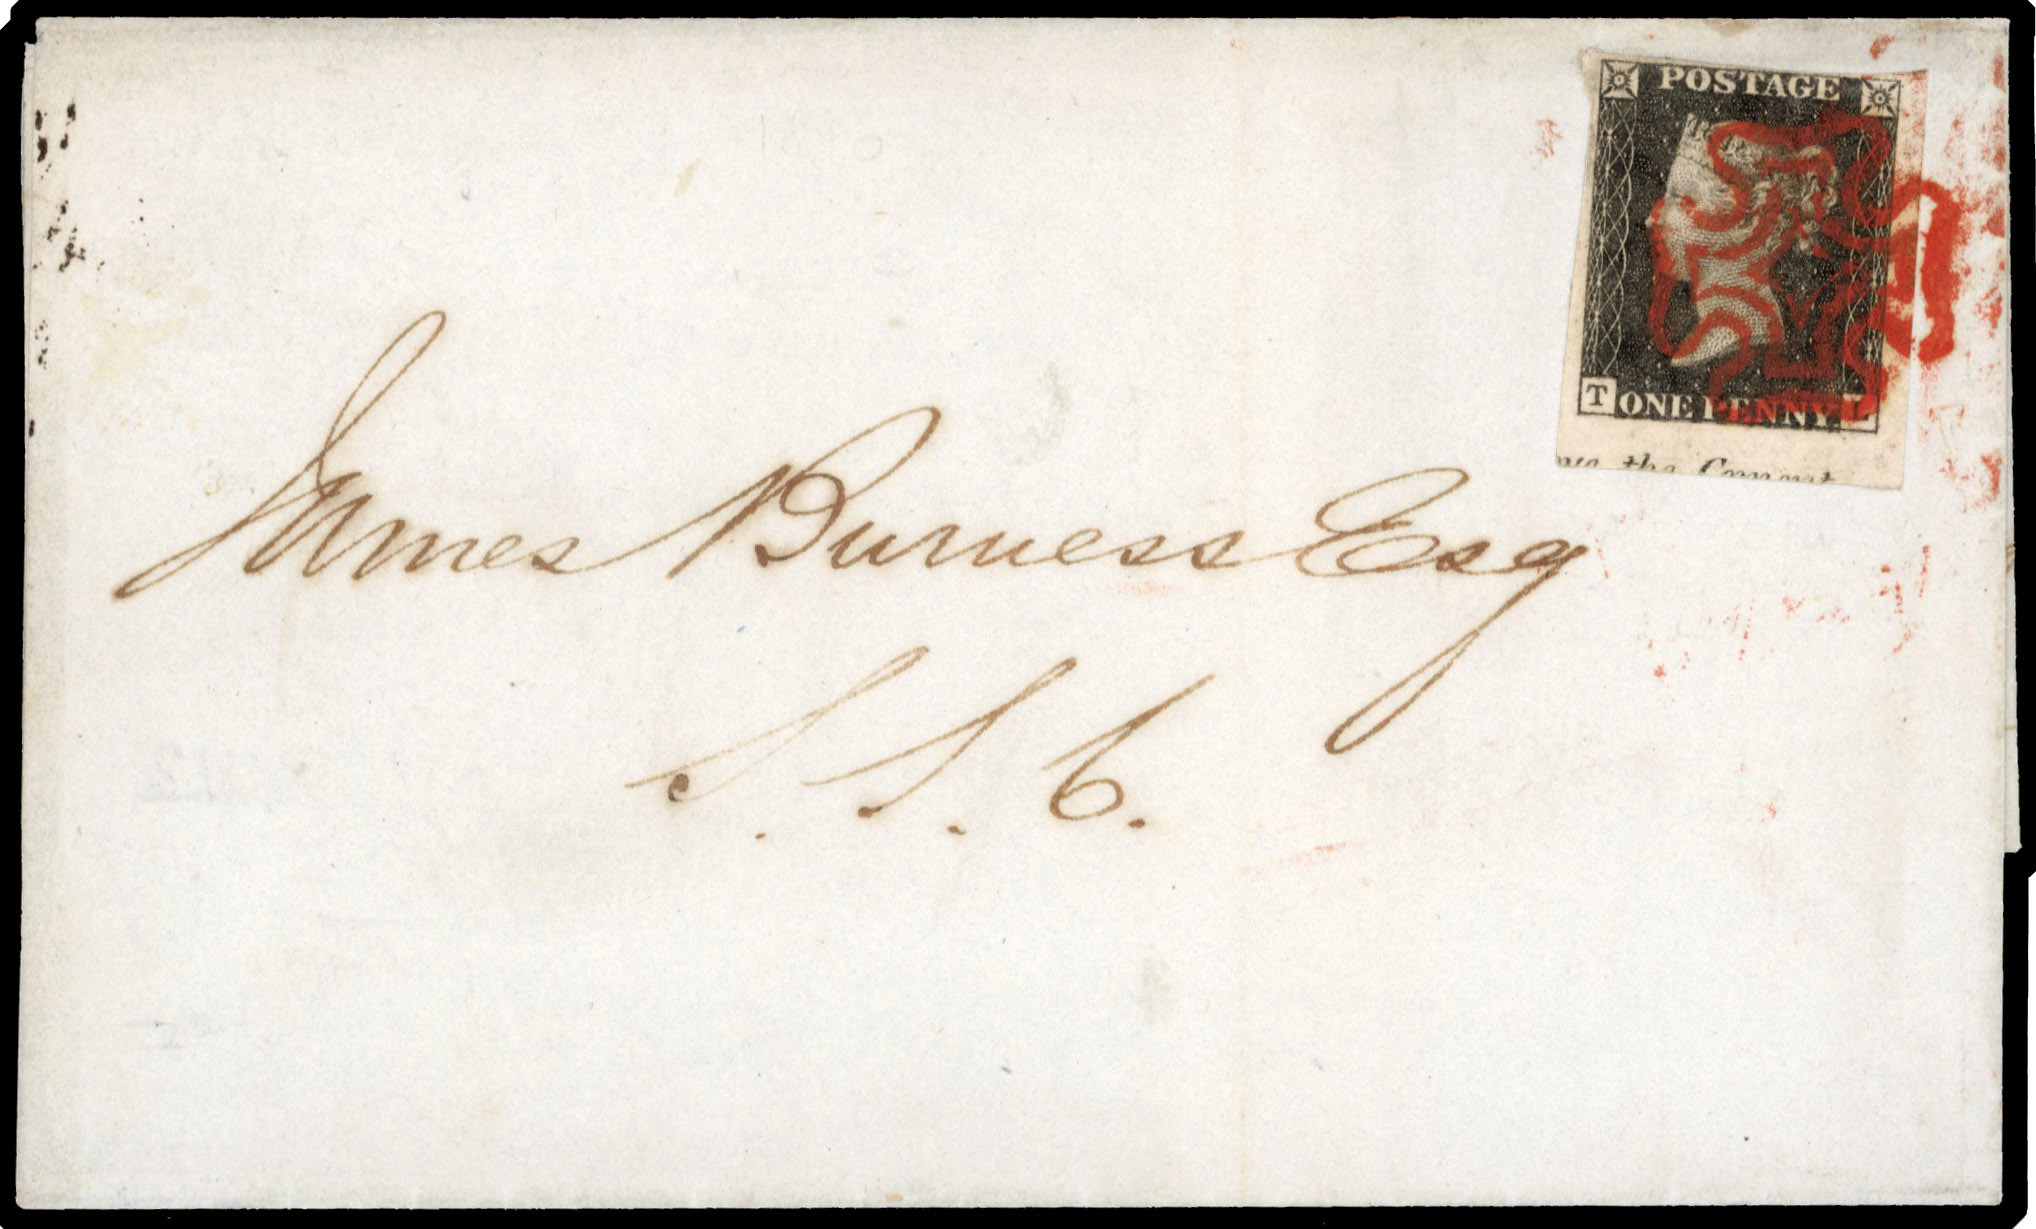 POSTAGE
T ONE PENNY. L
the Cement
James Burness Esq
S. S. C.